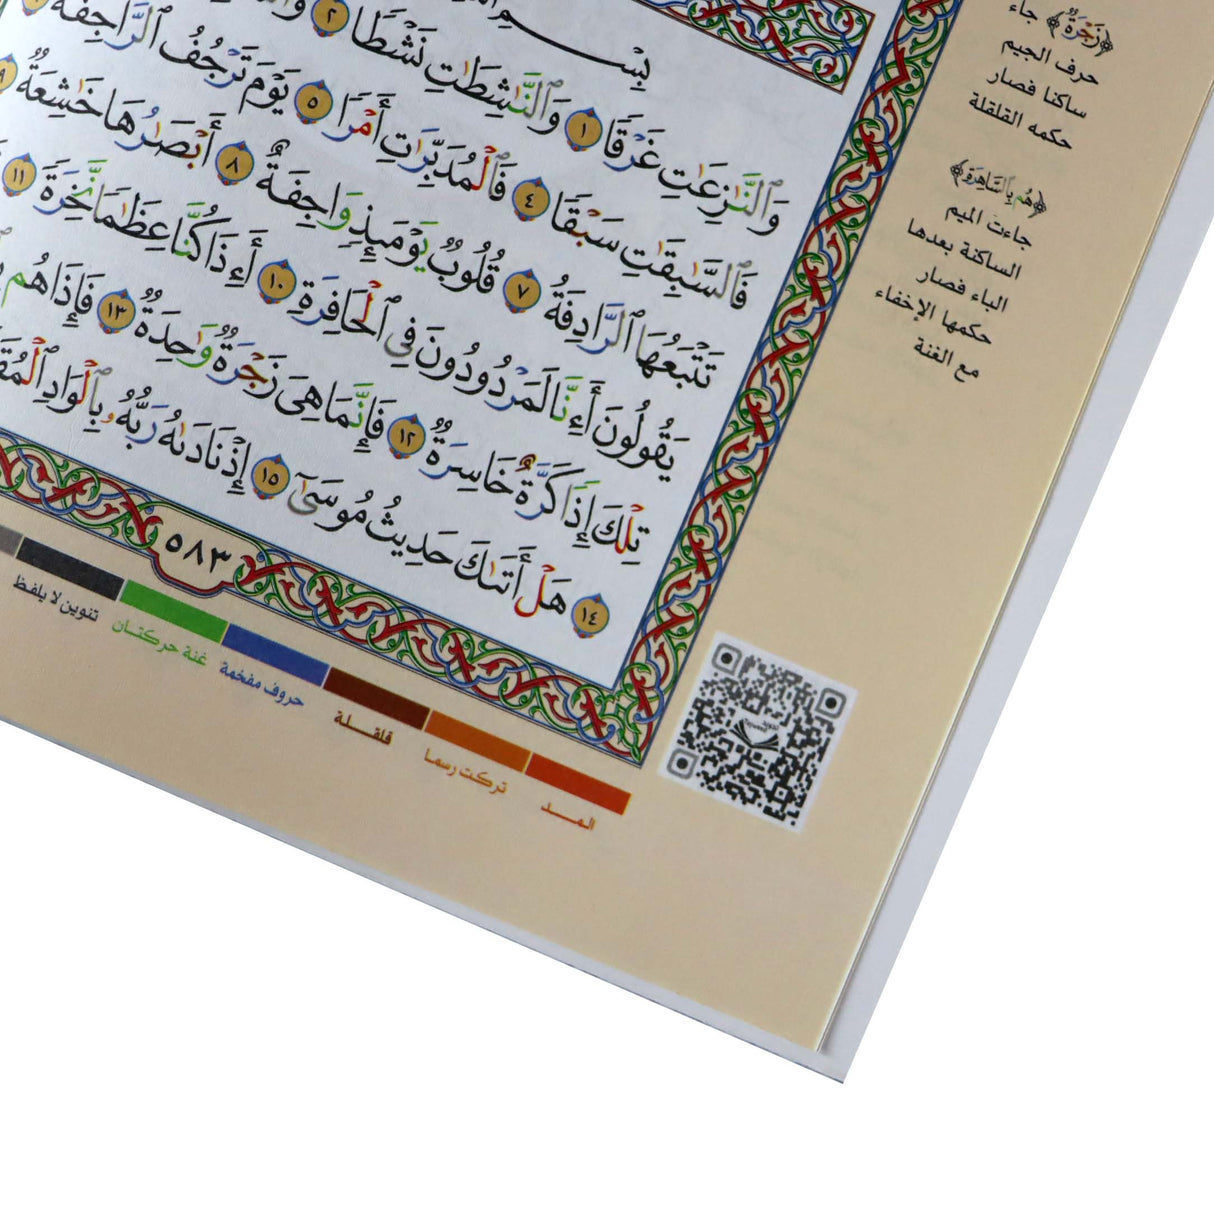 بِسْمِ
وَٱلنَّـٰزِعَـٰتِ غَرْقًا ١ وَٱلنَّـٰشِطَـٰتِ نَشْطًا ٢
فَٱلسَّـٰبِقَـٰتِ سَبْقًا ٤ فَٱلْمُدَبِّرَٰتِ أَمْرًا ٥ يَوْمَ تَرْجُفُ ٱلرَّاجِفَةُ
تَتْبَعُهَا ٱلرَّادِفَةُ ٧ قُلُوبٌ يَوْمَئِذٍ وَاجِفَةٌ ٨ أَبْصَـٰرُهَا خَـٰشِعَةٌ ٩
يَقُولُونَ أَءِنَّا لَمَرْدُودُونَ فِى ٱلْحَافِرَةِ ١٠ أَءِذَا كُنَّا عِظَـٰمًا نَّخِرَةً ١١
تِلْكَ إِذًا كَرَّةٌ خَاسِرَةٌ ١٢ فَإِنَّمَا هِىَ زَجْرَةٌ وَٰحِدَةٌ ١٣ فَإِذَا هُم
١٤ هَلْ أَتَىٰكَ حَدِيثُ مُوسَىٰٓ ١٥ إِذْ نَادَىٰهُ رَبُّهُۥ بِٱلْوَادِ
٥٨٣
﴿زَجْرَةٌ﴾ جاء
حرف الجيم
ساكنا فصار
حكمه القلقلة
﴿هُم بِٱلسَّاهِرَةِ﴾
جاءت الميم
الساكنة بعدها
الباء فصار
حكمها الإخفاء
مع الغنة
المــد
تركت رسما
قلقـلة
حروف مفخمة
غنة حركتـان
تنوين لا يلفظ